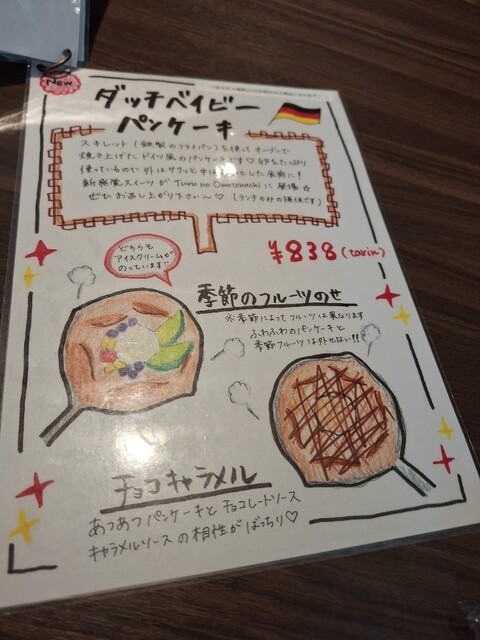 New
ダッチベイビー
パンケーキ
スキレット(鉄製のフライパン)を使ってオーブンで
焼き上げたドイツ風のパンケーキです♡卵をたっぷり
使っているので外はサクッと中は とした食感に!
新感覚スイーツが Tsuru no Omotenashi に登場☆
ぜひお召し上がり下さい〜♡(ランチのみの提供です)
¥838(taxin)
どちらも
アイスクリームが
のっています!!
季節のフルーツのせ
※季節によってフルーツは異なります
ふわふわのパンケーキと
季節フルーツは外せない!!
チョコキャラメル
あつあつパンケーキとチョコレートソース
キャラメルソースの相性がばっちり♡